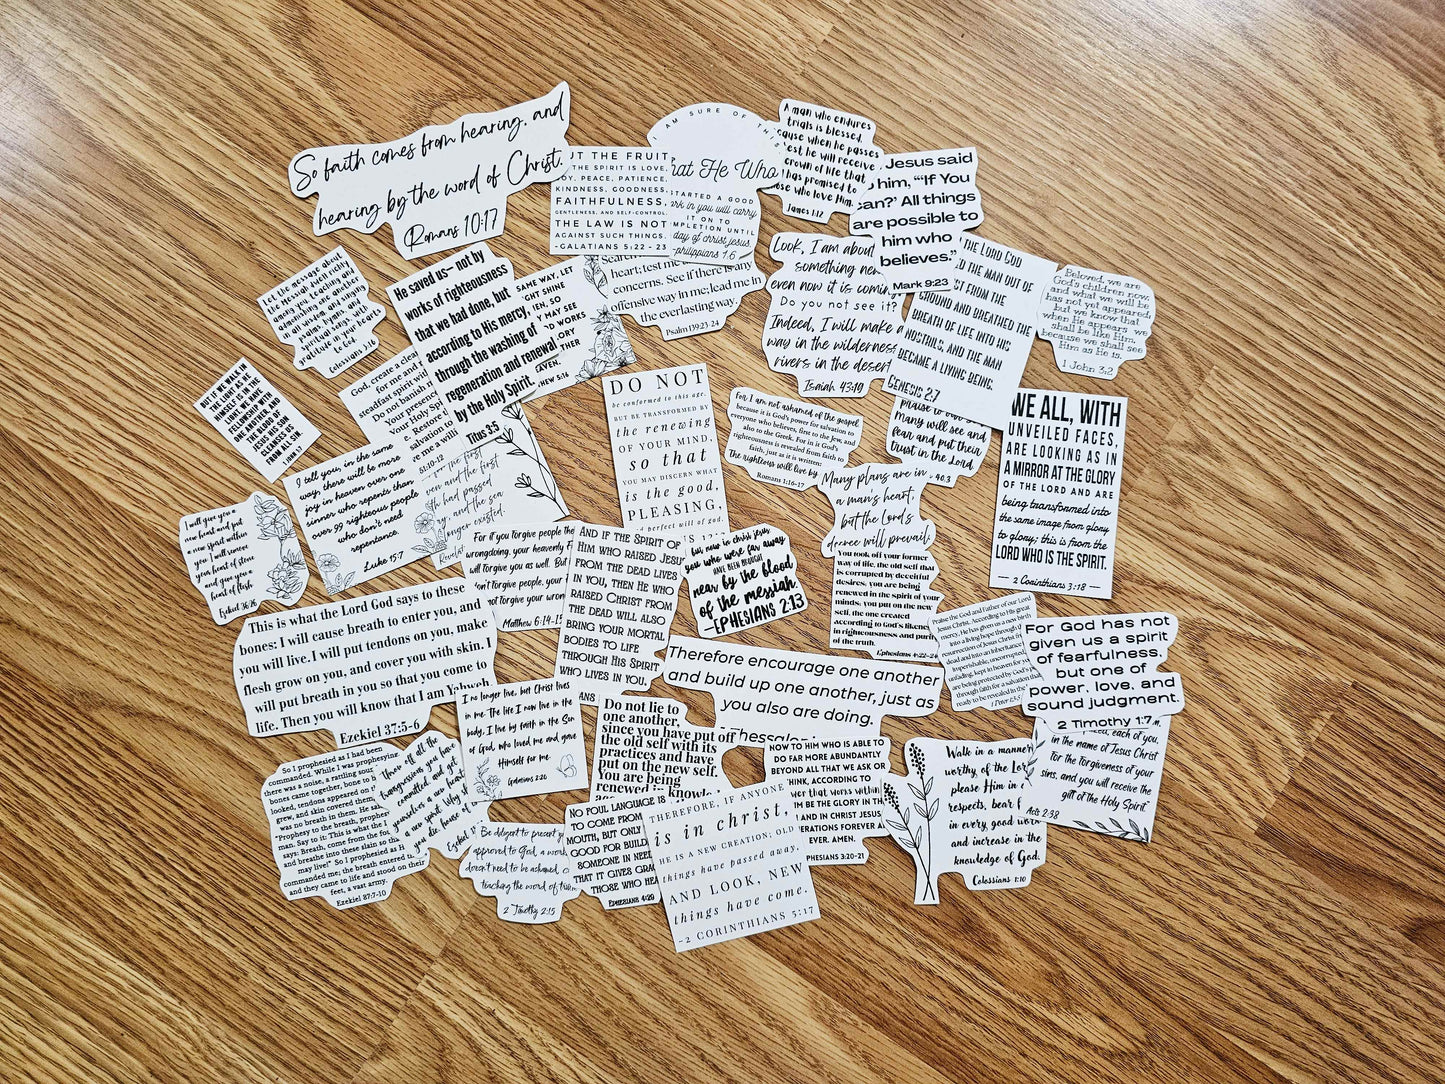 So faith comes from hearing, and
hearing by the word of Christ.
Romans 10:17
UT THE FRUIT
THE SPIRIT IS LOVE,
OY, PEACE, PATIENCE,
KINDNESS, GOODNESS,
FAITHFULNESS,
GENTLENESS, AND SELF-CONTROL.
THE LAW IS NOT
AGAINST SUCH THINGS.
-GALATIANS 5:22 - 23
I AM SURE OF THIS
hat He Who
STARTED A GOOD
ork in you will carry
IT ON TO
MPLETION UNTIL
day of christ jesus.
-philippians 1:6
A man who endures
trials is blessed,
cause when he passes
est he will receive
crown of life that
has promised to
ose who love Him.
James 1:12
Jesus said
him, “‘If You
can?’ All things
are possible to
him who
believes.”
Mark 9:23
Let the message about
the Messiah dwell richly
among you, teaching and
admonishing one another
in all wisdom, and singing
psalms, hymns, and
spiritual songs, with
gratitude in your hearts
to God.
Colossians 3:16
He saved us– not by
works of righteousness
that we had done, but
according to His mercy,
through the washing of
regeneration and renewal
by the Holy Spirit.
Titus 3:5
SAME WAY, LET
GHT SHINE
EN, SO
Y MAY SEE
D WORKS
ORY
AVEN.
HEW 5:16
Search
heart; test me a
concerns. See if there is any
offensive way in me; lead me in
the everlasting way.
Psalm 139:23-24
Look, I am about
something new
even now it is coming
Do you not see it?
Indeed, I will make a
way in the wilderness
rivers in the desert
Isaiah 43:19
THE LORD GOD
D THE MAN OUT OF
ST FROM THE
GROUND AND BREATHED THE
BREATH OF LIFE INTO HIS
NOSTRILS, AND THE MAN
BECAME A LIVING BEING.
GENESIS 2:7
Beloved, we are
God's children now,
and what we will be
has not yet appeared;
but we know that
when He appears we
shall be like Him,
because we shall see
Him as He is.
1 John 3:2
BUT IF WE WALK IN
THE LIGHT AS HE
HIMSELF IS IN THE
LIGHT, WE HAVE
FELLOWSHIP WITH
ONE ANOTHER, AND
THE BLOOD OF
JESUS HIS SON
CLEANSES US
FROM ALL SIN.
1 JOHN 1:7
God, create a clean
for me and
steadfast spirit wit
Do not banish m
Your presence
Your Holy Sp
e. Restore
salvation to
e me a willi
51:10-12
DO NOT
be conformed to this age,
BUT BE TRANSFORMED BY
the renewing
OF YOUR MIND,
so that
YOU MAY DISCERN WHAT
is the good,
PLEASING,
nd perfect will of god.
For I am not ashamed of the gospel,
because it is God's power for salvation to
everyone who believes, first to the Jew, and
also to the Greek. For in it God's
righteousness is revealed from faith to
faith, just as it is written:
the righteous will live by
Romans 1:16-17
praise to our God.
Many will see and
fear and put their
trust in the Lord.
40:3
WE ALL, WITH
UNVEILED FACES,
ARE LOOKING AS IN
A MIRROR AT THE GLORY
OF THE LORD AND ARE
being transformed into
the same image from glory
to glory; this is from the
LORD WHO IS THE SPIRIT.
— 2 Corinthians 3:18 —
I tell you, in the same
way, there will be more
joy in heaven over one
sinner who repents than
over 99 righteous people
who don't need
repentance.
Luke 15:7
or the first
ven and the first
th had passed
y, and the sea
longer existed.
Revelat
Many plans are in
a man's heart,
but the Lord's
decree will prevail.
I will give you a
new heart and put
a new spirit within
you. I will remove
your heart of stone
and give you a
heart of flesh.
Ezekiel 36:26
For if you forgive people the
wrongdoing, your heavenly F
will forgive you as well. But
don't forgive people, your
not forgive your wrong
Matthew 6:14-15
AND IF THE SPIRIT OF
HIM WHO RAISED JESUS
FROM THE DEAD LIVES
IN YOU, THEN HE WHO
RAISED CHRIST FROM
THE DEAD WILL ALSO
BRING YOUR MORTAL
BODIES TO LIFE
THROUGH HIS SPIRIT
WHO LIVES IN YOU.
ANS
but now in christ jesus,
you who were far away
HAVE BEEN BROUGHT
near by the blood
of the messiah.
–EPHESIANS 2:13
You took off your former
way of life, the old self that
is corrupted by deceitful
desires; you are being
renewed in the spirit of your
minds; you put on the new
self, the one created
according to God's likene
in righteousness and puri
of the truth.
Ephesians 4:22-24
Praise the God and Father of our Lord
Jesus Christ. According to His great
mercy, He has given us a new birth
into a living hope through th
resurrection of Jesus Christ fr
dead and into an inheritance
imperishable, uncorrupted,
unfading, kept in heaven for yo
are being protected by God's p
through faith for a salvation tha
ready to be revealed in the
1 Peter 1:3-5
For God has not
given us a spirit
of fearfulness,
but one of
power, love, and
sound judgment.
2 Timothy 1:7
This is what the Lord God says to these
bones: I will cause breath to enter you, and
you will live. I will put tendons on you, make
flesh grow on you, and cover you with skin. I
will put breath in you so that you come to
life. Then you will know that I am Yahweh
Ezekiel 37:5-6
Therefore encourage one another
and build up one another, just as
you also are doing.
Thessalon
I no longer live, but Christ lives
in me. The life I now live in the
body, I live by faith in the Son
of God, who loved me and gave
Himself for me.
Galatians 2:20
Do not lie to
one another,
since you have put off
the old self with its
practices and have
put on the new self.
You are being
renewed in knowle
each of you,
in the name of Jesus Christ
for the forgiveness of your
sins, and you will receive the
gift of the Holy Spirit.
Acts 2:38
So I prophesied as I had been
commanded. While I was prophesying,
there was a noise, a rattling soun
bones came together, bone to b
looked, tendons appeared on t
grew, and skin covered them,
was no breath in them. He sa
"Prophesy to the breath, prophes
man. Say to it: This is what the L
says: Breath, come from the fou
and breathe into these slain so tha
may live!" So I prophesied as H
commanded me; the breath entered t
and they came to life and stood on their
feet, a vast army.
Ezekiel 37:7-10
Throw off all the
transgressions you have
committed, and get
yourselves a new heart
and a new spirit. Why sh
you die, house of
Ezekiel
NOW TO HIM WHO IS ABLE TO
DO FAR MORE ABUNDANTLY
BEYOND ALL THAT WE ASK OR
THINK, ACCORDING TO
wer that works within
IM BE THE GLORY IN TH
AND IN CHRIST JESUS
ERATIONS FOREVER A
VER. AMEN.
PHESIANS 3:20-21
Walk in a manner
worthy of the Lor
please Him in
respects, bear f
in every good wor
and increase in the
knowledge of God.
Colossians 1:10
Be diligent to present yo
approved to God, a work
doesn't need to be ashamed, c
teaching the word of trut
2 Timothy 2:15
NO FOUL LANGUAGE IS
TO COME FROM
MOUTH, BUT ONLY
GOOD FOR BUILD
SOMEONE IN NEE
THAT IT GIVES GRAC
THOSE WHO HEA
EPHESIANS 4:29
THEREFORE, IF ANYONE
is in christ,
HE IS A NEW CREATION; OLD
things have passed away,
AND LOOK, NEW
things have come.
-2 CORINTHIANS 5:17